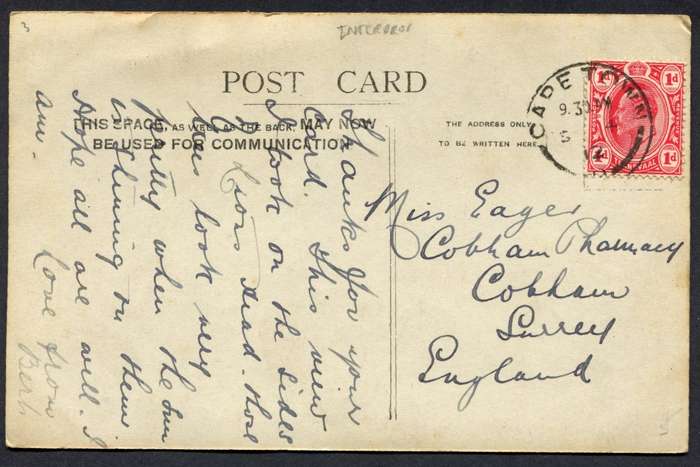 POST CARD
THIS SPACE, AS WELL AS THE BACK, MAY NOW
BE USED FOR COMMUNICATION.
THE ADDRESS ONLY
TO BE WRITTEN HERE.
Thanks for your
card. This view
I took on the sides
of Lions Head. Those
trees look very
pretty when the sun
is shining on them
Hope all are well. I
am.
Love from
Miss Eager
Cobham Pharmacy
Cobham
Surrey
England
CAPE TOWN
1d 1d
1d 1d